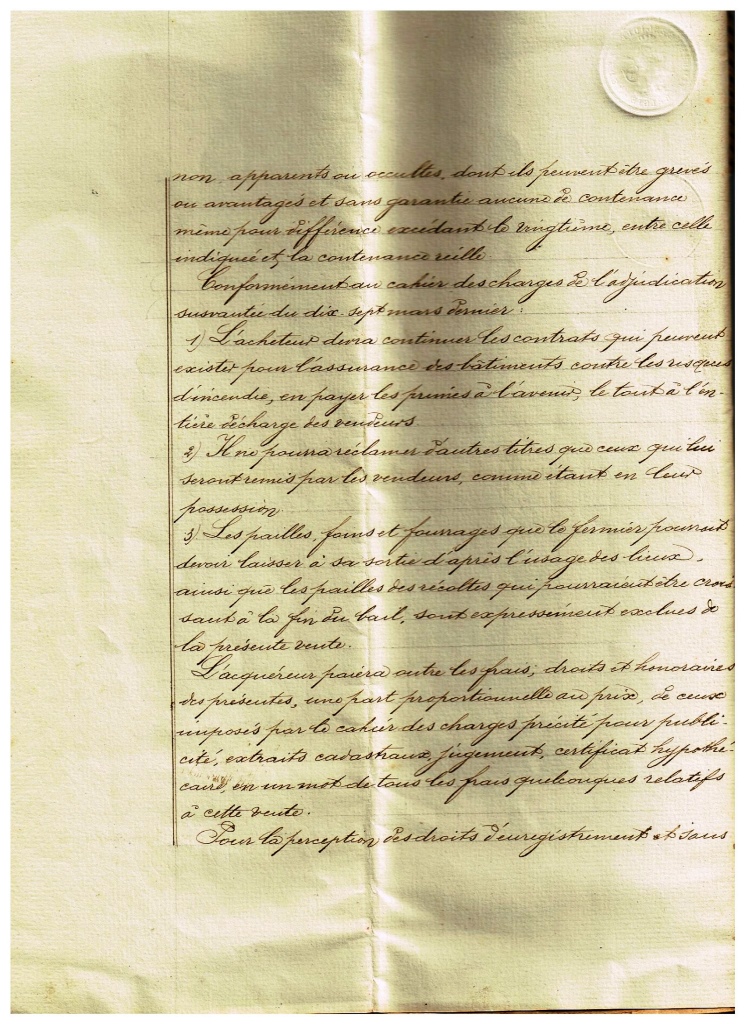 non apparents ou occultes, dont ils peuvent être grevés
ou avantagés et sans garantie aucune de contenance
même pour différence excédant le vingtième, entre celle
indiquée et la contenance réelle.
Conformément au cahier des charges de l'adjudication
susvantée du dix-sept mars dernier :
1) L'acheteur devra continuer les contrats qui peuvent
exister pour l'assurance des bâtiments contre les risques
d'incendie, en payer les primes à l'avenir, le tout à l'en-
tière décharge des vendeurs
2) Il ne pourra réclamer d'autres titres que ceux qui lui
seront remis par les vendeurs, comme étant en leur
possession
3) Les pailles, foins et fourrages que le fermier pourrait
devoir laisser à sa sortie d'après l'usage des lieux,
ainsi que les pailles des récoltes qui pourraient être crois-
sant à la fin du bail, sont expressément exclues de
la présente vente.
L'acquéreur paiera outre les frais, droits et honoraires
des présentes, une part proportionnelle au prix, de ceux
imposés par le cahier des charges précité pour publi-
cité, extraits cadastraux, jugement, certificat hypothé-
caire, en un mot de tous les frais quelconques relatifs
à cette vente.
Pour la perception des droits d'enregistrement et sans